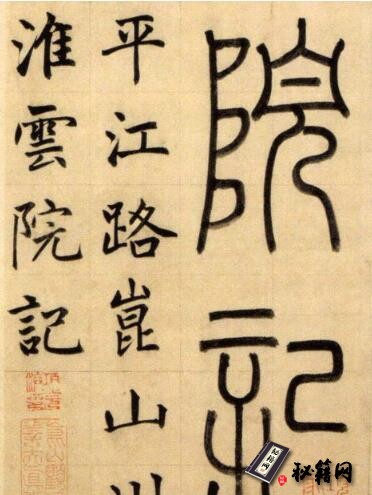 院記
平江路崑山州
淮雲院記
秘籍网
秘籍网